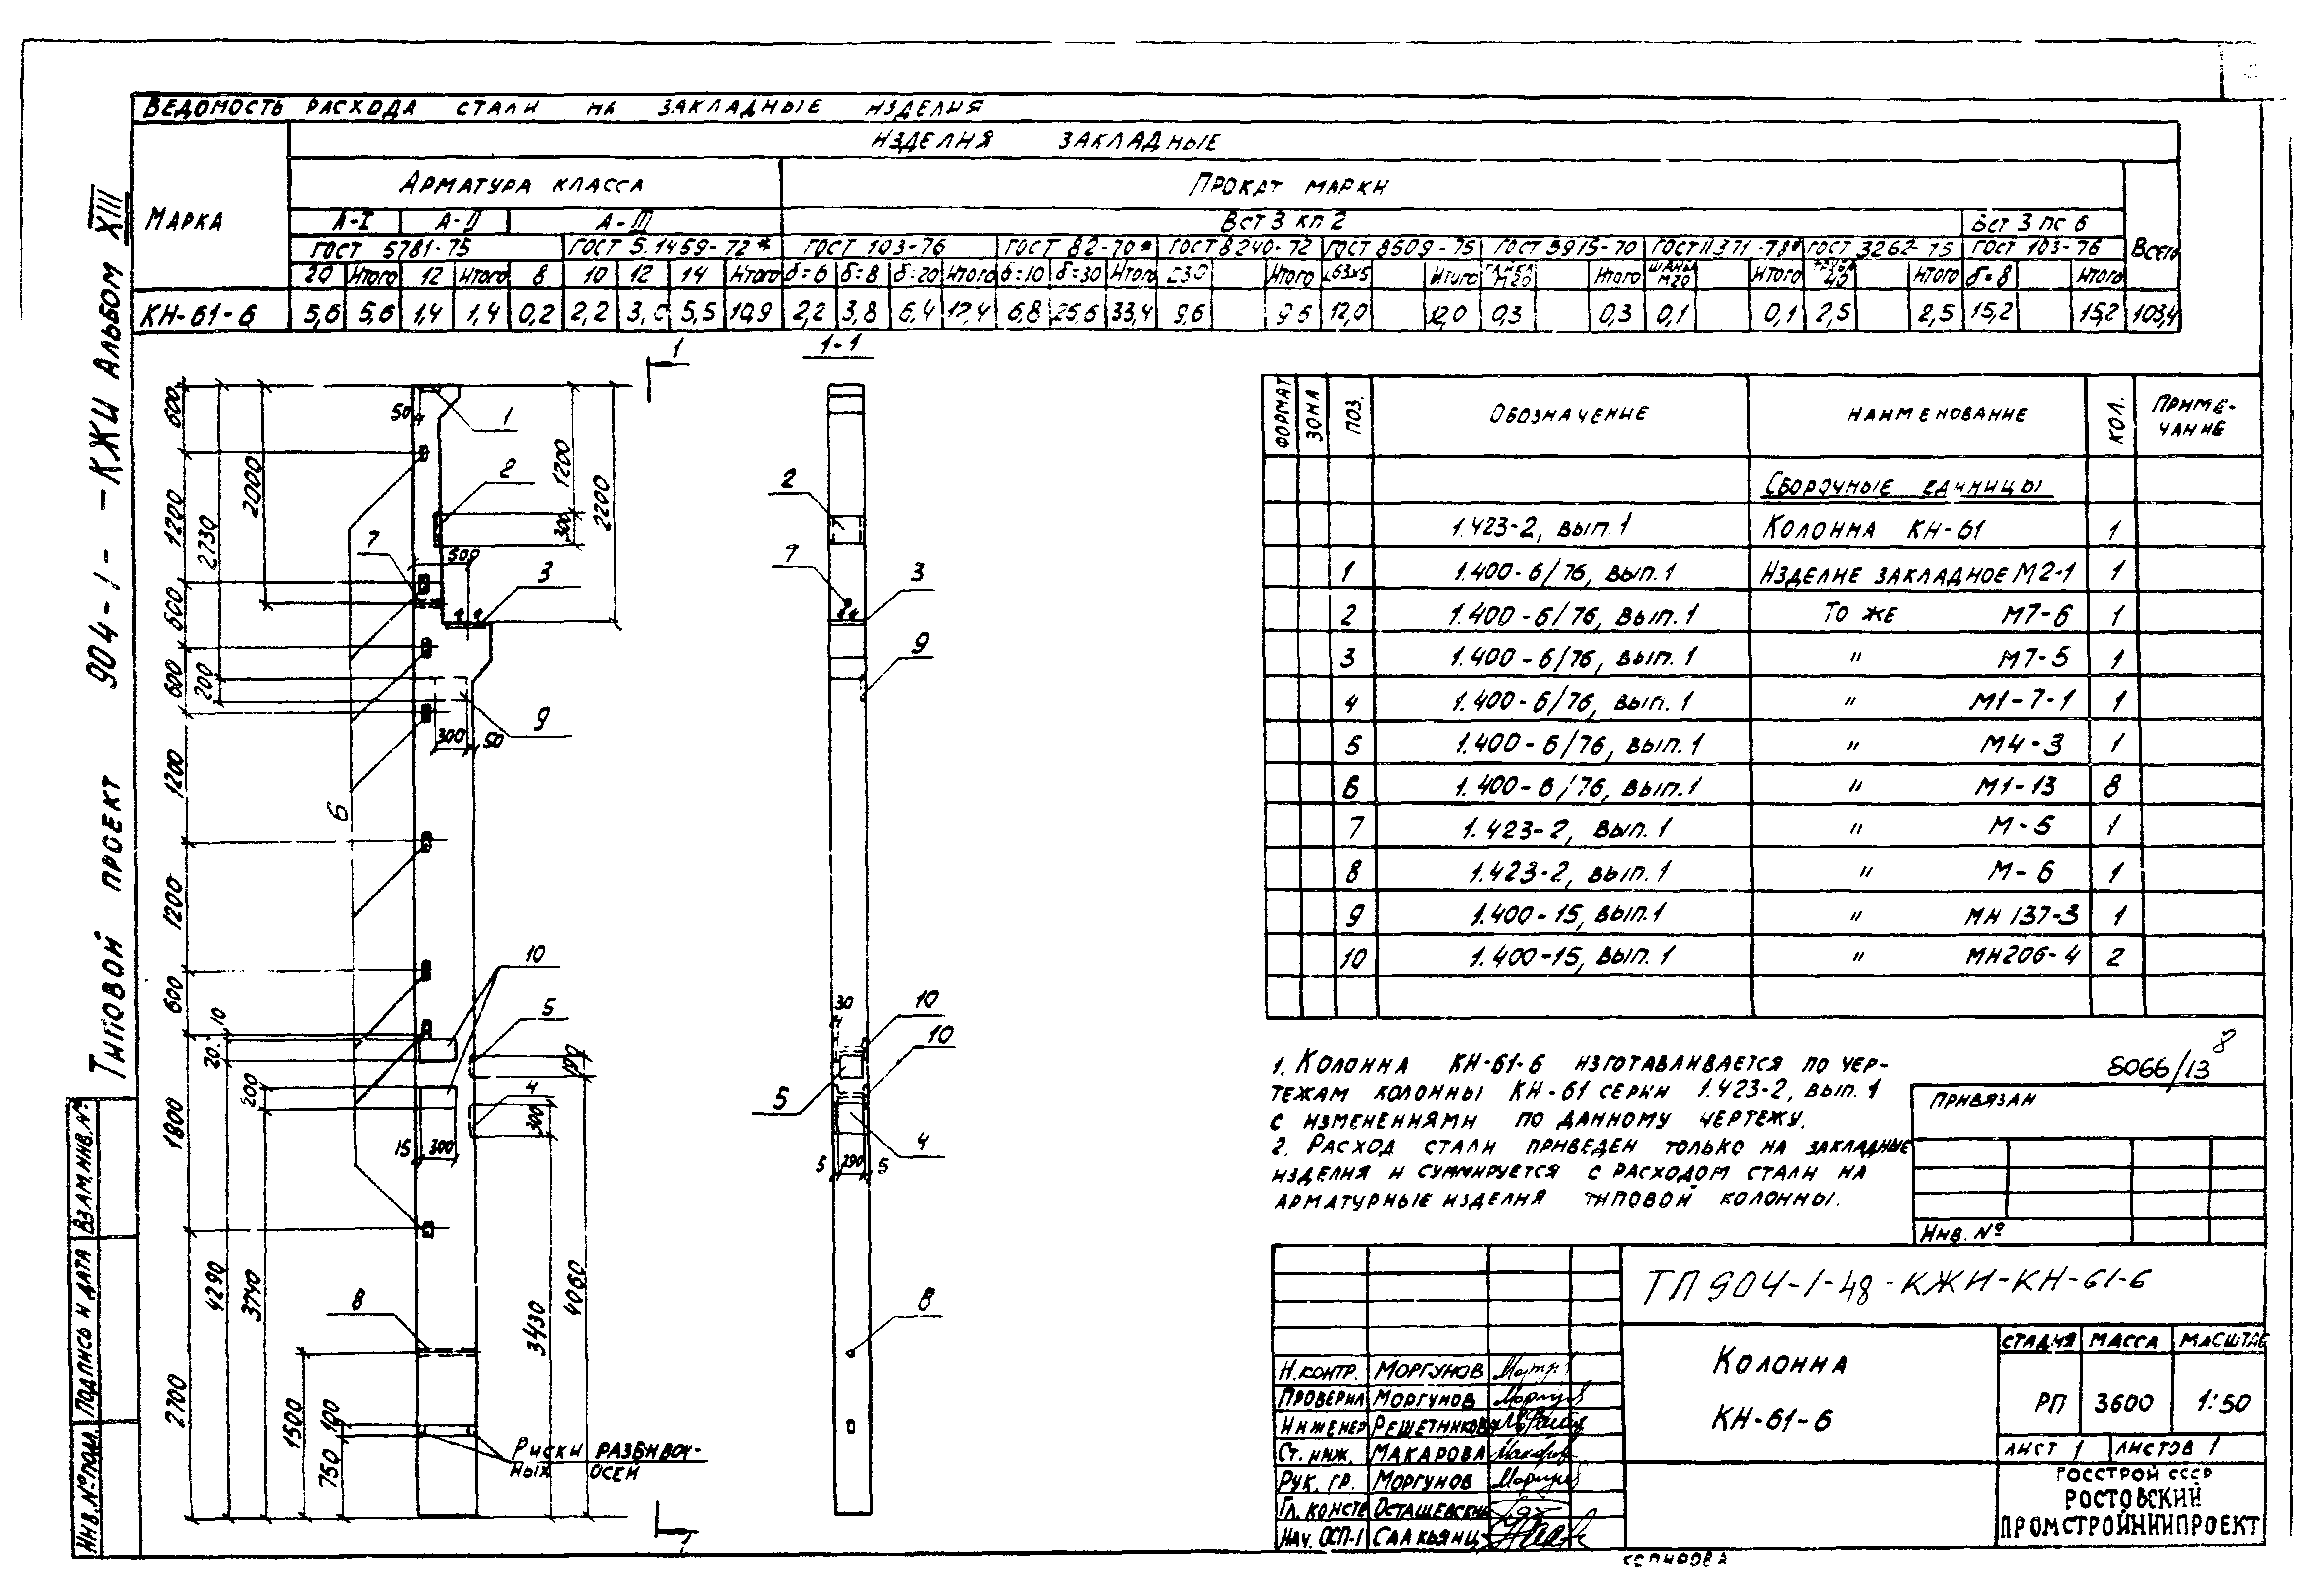 Ведомость расхода стали на закладные изделия
Марка
Изделия закладные
Арматура класса
Прокат марки
Всего
А-I А-II А-III
Вст 3 кп 2
Вст 3 пс 6
ГОСТ 5781-75 ГОСТ 5.1459-72* ГОСТ 103-76 ГОСТ 82-70* ГОСТ 8240-72 ГОСТ 8509-75 ГОСТ 5915-70 ГОСТ 11371-78* ГОСТ 3262-75 ГОСТ 103-76
20 Итого 12 Итого 8 10 12 14 Итого δ=6 δ=8 δ=20 Итого δ=10 δ=30 Итого ⊏30 Итого ∟63х5 Итого Гайка М20 Итого Шайба М20 Итого Труба 40 Итого δ=8 Итого
КН-61-6 5,6 5,6 1,4 1,4 0,2 2,2 3,0 5,5 10,9 2,2 3,8 6,4 12,4 6,8 26,6 33,4 9,6 9,6 12,0 12,0 0,3 0,3 0,1 0,1 2,5 2,5 15,2 15,2 103,4
Типовой проект 904-1- -КЖИ Альбом XIII
Инв.№подл. Подпись и дата Взам.инв.№
1
600
1200
600
600
1200
1200
600
1800
2700
2730
200
2000
50
1
2
7
500
3
1200
300
2200
9
300
50
6
10
5
4
20
10
200
15
300
100
300
4290
3740
8
1500
100
750
3430
4060
Риски разбивоч-
ных осей
1
1-1
2
7
3
9
30
10
10
5
4
5
290
5
8
Формат Зона Поз. Обозначение Наименование Кол. Приме-
чание
Сборочные единицы
1.423-2, вып.1 Колонна КН-61 1
1 1.400-6/76, вып.1 Изделие закладное М2-1 1
2 1.400-6/76, вып.1 То же М7-6 1
3 1.400-6/76, вып.1 " М7-5 1
4 1.400-6/76, вып.1 " М1-7-1 1
5 1.400-6/76, вып.1 " М4-3 1
6 1.400-6/76, вып.1 " М1-13 8
7 1.423-2, вып.1 " М-5 1
8 1.423-2, вып.1 " М-6 1
9 1.400-15, вып.1 " МН137-3 1
10 1.400-15, вып.1 " МН206-4 2
1. Колонна КН-61-6 изготавливается по чер-
тежам колонны КН-61 серии 1.423-2, вып.1
с изменениями по данному чертежу.
2. Расход стали приведен только на закладные
изделия и суммируется с расходом стали на
арматурные изделия типовой колонны.
8066/13
8
Привязан
Инв. №
ТП 904-1-48-КЖИ-КН-61-6
Колонна
КН-61-6
Стадия Масса Масштаб
РП 3600 1:50
Лист 1 Листов 1
Госстрой СССР
Ростовский
Промстройниипроект
Н.контр. Моргунов
Проверил Моргунов
Инженер Решетникова
Ст. инж. Макарова
Рук. гр. Моргунов
Гл. констр Осташевский
Нач. ОСП-1 Саакьянц
Копирова